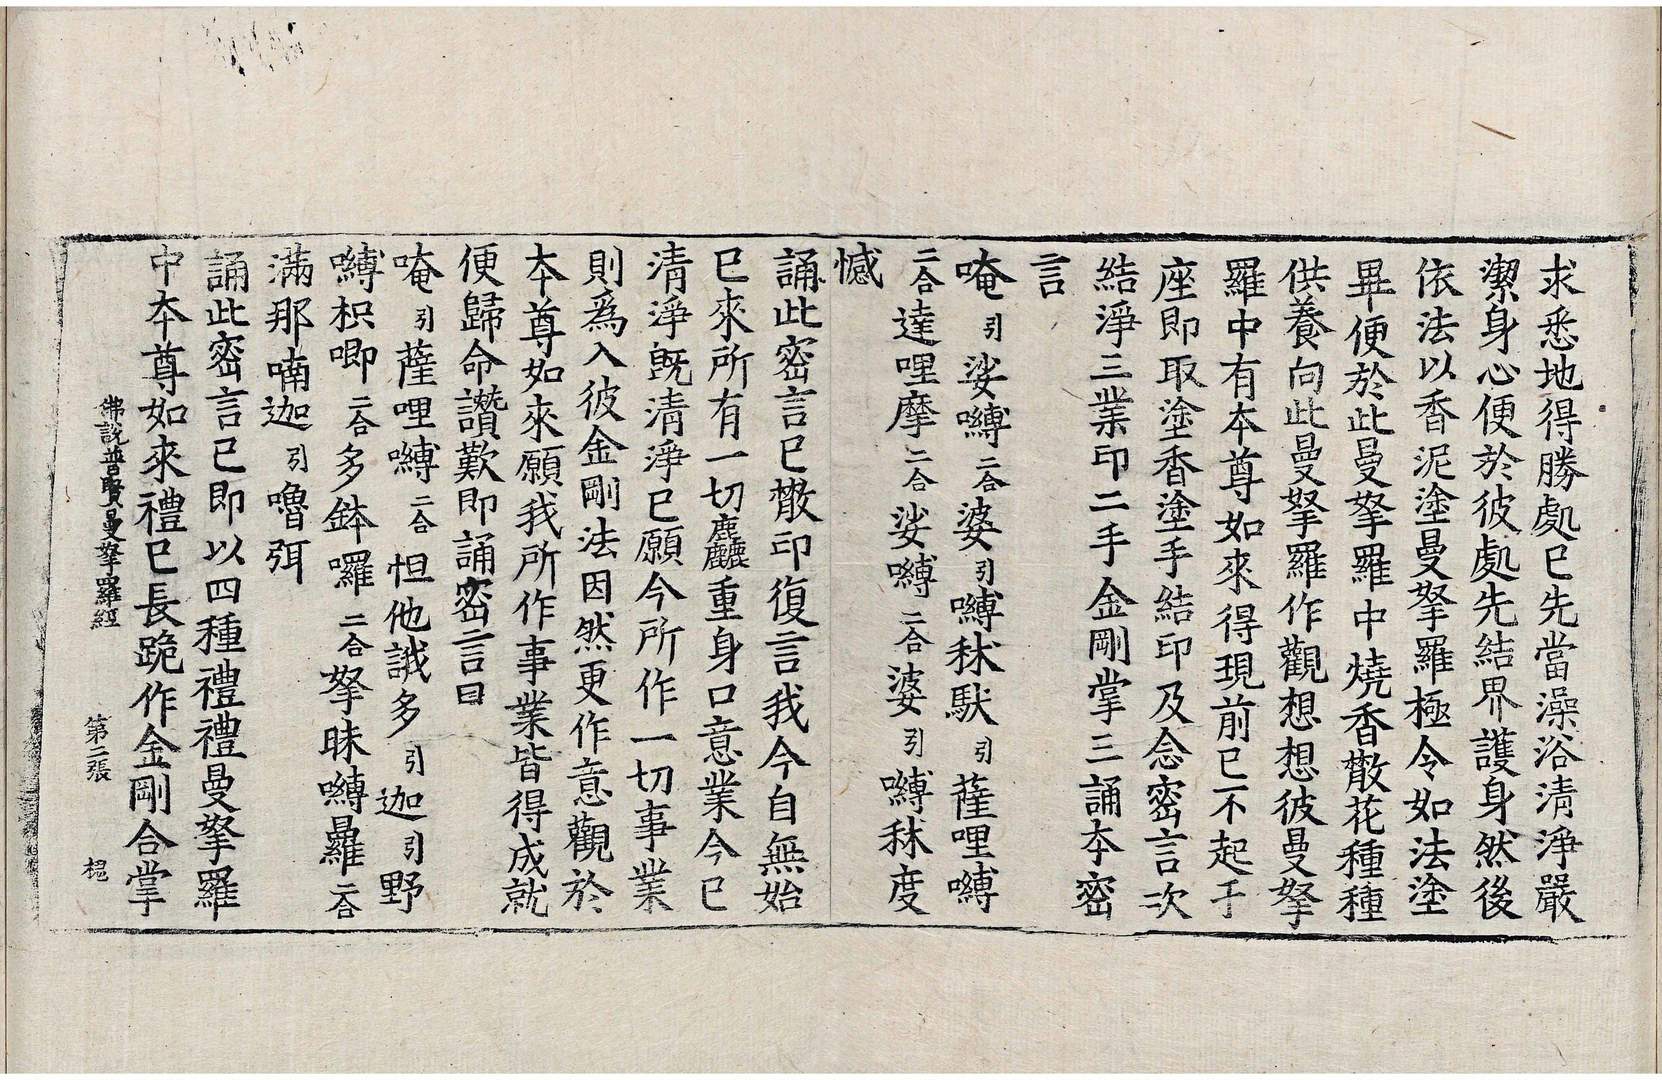 求悉地得勝處已先當澡浴清淨嚴
潔身心便於彼處先結界護身然後
依法以香泥塗曼拏羅極令如法塗
畢便於此曼拏羅中燒香散花種種
供養向此曼拏羅作觀想想彼曼拏
羅中有本尊如來得現前已不起于
座即取塗香塗手結印及念密言次
結淨三業印二手金剛掌三誦本密
言
唵引娑嚩二合婆引嚩秫馱引薩哩嚩
二合達哩摩二合娑嚩二合婆引嚩秫度
憾
誦此密言已散印復言我今自無始
已來所有一切麤重身口意業今已
清淨既清淨已願今所作一切事業
則為入彼金剛法因然更作意觀於
本尊如來願我所作事業皆得成就
便歸命讚歎即誦密言曰
唵引薩哩嚩二合怛他誐多引迦引野
嚩枳唧二合多鉢囉二合拏昧嚩曩羅二合
滿那喃迦引嚕弭
誦此密言已即以四種禮禮曼拏羅
佛說普賢曼拏羅經 第二張 槐
中本尊如來禮已長跪作金剛合掌